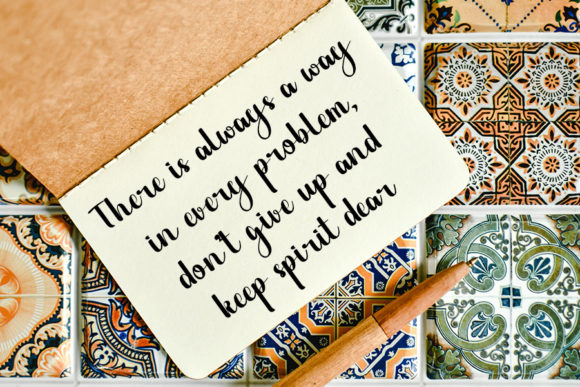 There is always a way
in every problem,
don't give up and
keep spirit dear